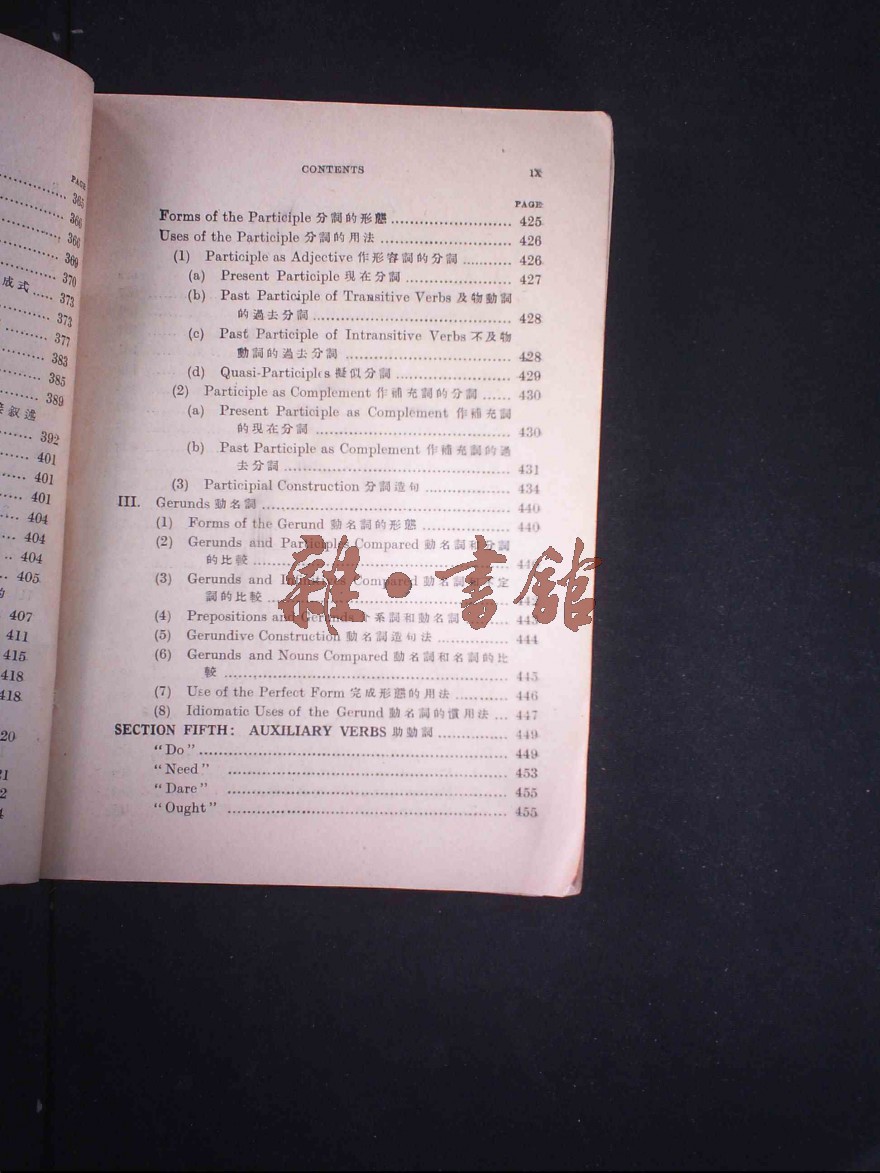 PAGE
365
366
366
369
370
成式 .... 373
373
377
383
385
389
叙述
392
401
401
401
404
404
404
405
的
407
411
415
418
418
20
21
2
4
CONTENTS ix
PAGE
Forms of the Participle 分詞的形態 ........................ 425
Uses of the Participle 分詞的用法 ........................ 426
(1) Participle as Adjective 作形容詞的分詞 ........... 426
(a) Present Participle 現在分詞 ...................... 427
(b) Past Participle of Transitive Verbs 及物動詞
的過去分詞 ........................................ 428
(c) Past Participle of Intransitive Verbs 不及物
動詞的過去分詞 .................................. 428
(d) Quasi-Participles 擬似分詞 ........................ 429
(2) Participle as Complement 作補充詞的分詞 ...... 430
(a) Present Participle as Complement 作補充詞
的現在分詞 ........................................ 430
(b) Past Participle as Complement 作補充詞的過
去分詞 .............................................. 431
(3) Participial Construction 分詞造句 ................. 434
III. Gerunds 動名詞 .................................................. 440
(1) Forms of the Gerund 動名詞的形態 .................. 440
(2) Gerunds and Participles Compared 動名詞和分詞
的比較
(3) Gerunds and Infinitives Compared 動名詞和不定
詞的比較 ............ 442
(4) Prepositions and Gerunds 介系詞和動名詞 ......... 443
(5) Gerundive Construction 動名詞造句法 ............... 444
(6) Gerunds and Nouns Compared 動名詞和名詞的比
較 .......................................................... 445
(7) Use of the Perfect Form 完成形態的用法 ........... 446
(8) Idiomatic Uses of the Gerund 動名詞的慣用法 ... 447
SECTION FIFTH: AUXILIARY VERBS 助動詞 .............. 449
"Do" .............................................................. 449
"Need" .......................................................... 453
"Dare" .......................................................... 455
"Ought" ........................................................ 455
雜·書館